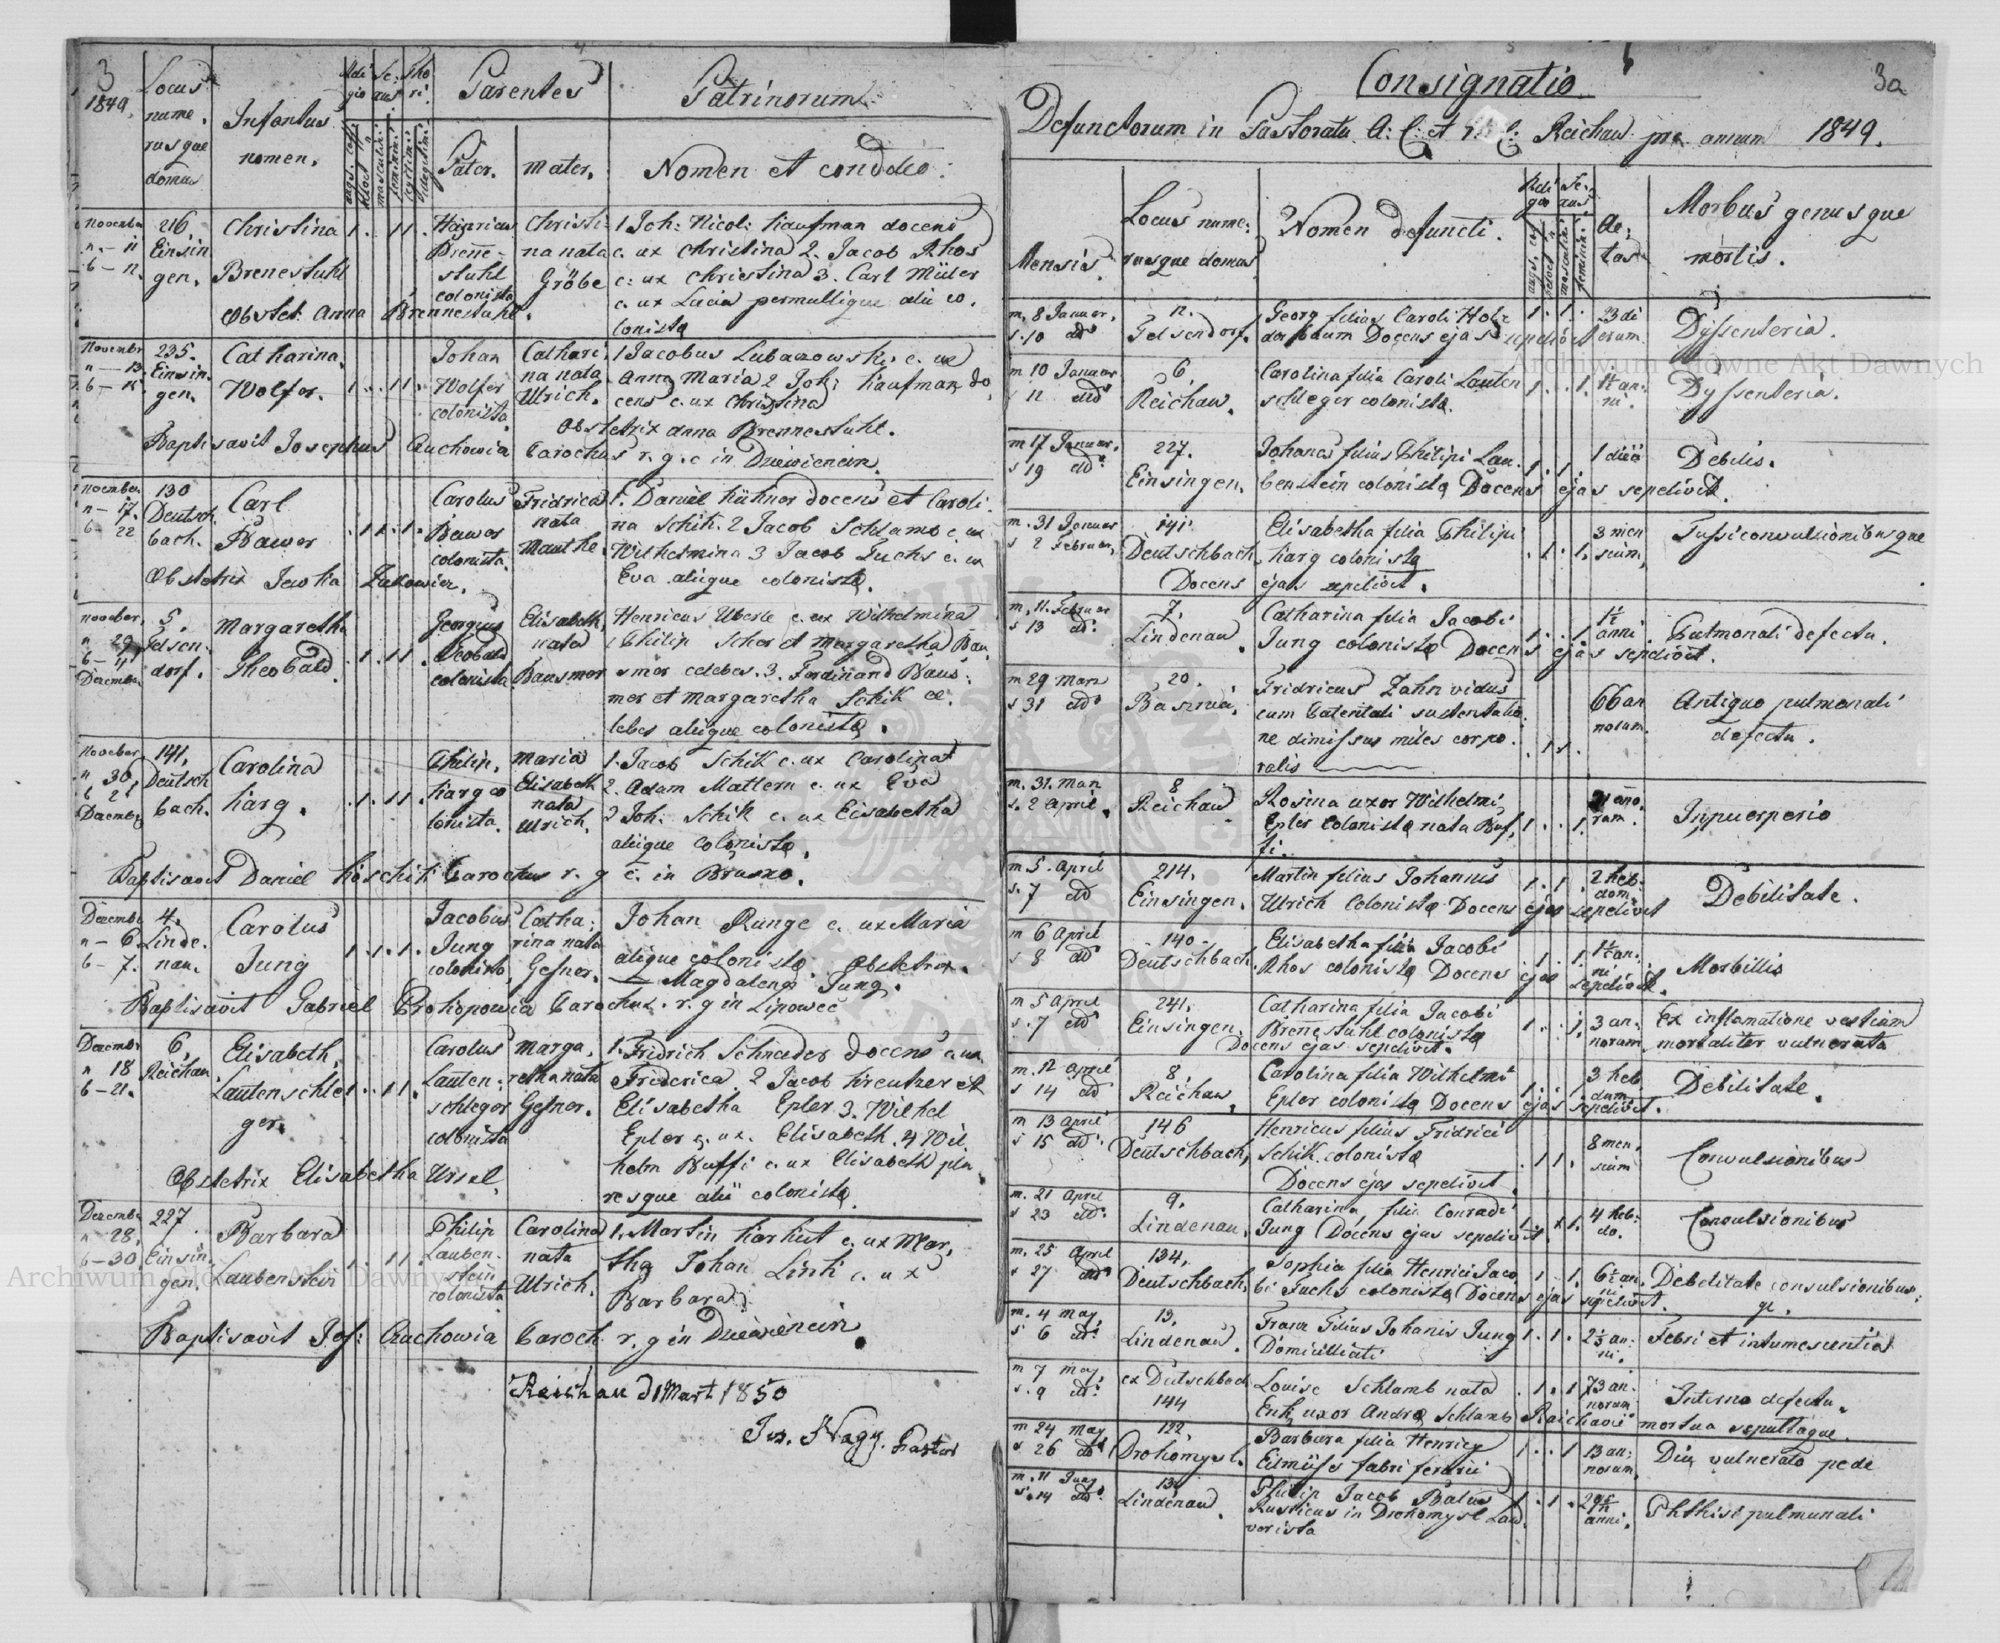 3
1849.
Locus
nume-
rusque
domus
Infantus
nomen.
Reli
gio
Se:
xus
Tho
ri.
Parentes
Patrinorum
Pater.
Mater.
Nomen et conditio.
Novembr
n - 11
b - 12.
216.
Einsin
gen.
Christina
Brenestuhl
1 . . 1 1 .
Heinricus
Brene-
stuhl
colonista
Christi-
na nata
Gröbe
1 Joh: Nicol: Kaufman docens
c. ux Christina 2. Jacob Rhos
c. ux Christina 3. Carl Müler
c. ux Lucia permultique alii co.
lonistæ
Obstet: Anna Brennestuhl.
Novembr
n - 13
b - 15.
235.
Einsin-
gen.
Catharina.
Wolfer.
1 . . 1 1 .
Johan
Wolfer
colonista.
Cathari
na nata
Ulrich.
1 Jacobus Lubaczowski c. ux
Anna Maria 2 Joh: Kaufman do
cens c. ux Christina
Obstetrix Anna Brennestuhl.
Baptisavit Josephus Czuchowicz Parochus r. g. c in
Novembr
n - 17.
b - 22
130
Deutsch
bach.
Carl
Bawer
Carolus
Bawer
colonista.
Fridrica
nata
Manthe.
1. Daniel Kühner docens et Caroli.
na Schik. 2 Jacob Schlamb c. ux
Wilhelmina 3 Jacob Fuchs c. ux
Eva aliique colonistæ.
Obstetrix
November
n 29
b - 4
Decembr
5.
Felsen-
dorf.
Margaretha
Theobald.
. 1 . 1 1 .
Georgius
Theobald
colonista.
Elisabeth
nata
Bausmer
Henricus Uberle c. ux Wilhelmina
Philip Scher et Margaretha Bau
smer celebes. 3. Ferdinand Baus:
mer et Margaretha Schik ce.
lebes aliique colonistæ.
November
n 30
b 2
Decembr
141.
Deutsch
bach.
Carolina
Karg.
. 1 . 1 1 .
Philip.
Karg co
lonista.
Maria
Elisabeth
nata
Ulrich.
1. Jacob Schik c. ux Carolina
2. Adam Mattern c. ux Eva
3 Joh: Schik c. ux Elisabetha
aliique colonistæ.
Baptisavit Daniel Parochus r. g c. in
Decembr
n - 6
b - 7.
4.
Linde-
nau.
Carolus
Jung
1 . 1 . 1 .
Jacobus
Jung
colonista
Catha:
rina nata
Gesner.
Johan Runge c. ux Maria
aliique colonistæ. Obstetrix.
Magdalena Jung.
Baptisavit Gabriel Prokopowicz Parochus. r. g in Lipowec
Decembr
n 18
b - 21.
6.
Reichau
Elisabeth.
Lautenschle
ger.
1 . . 1 1 .
Carolus
Lauten-
schleger
colonista
Marga.
retha nata
Gesner.
1. Fridrich Schneider docens c. ux
Friderica 2 Jacob Kreutzer et
Elisabetha Epler 3. Wilhel
Epler c. ux. Elisabeth. 4 Wil
helm Buffi c. ux Elisabeth plu.
resque alii colonistæ
Obstetrix Elisabetha Ursel.
Decembr
n 28.
b - 30
227
Einsin.
gen.
Barbara
Laubenstein
1 . . 1 1
Philip
Lauben-
stein
colonista
Carolina
nata
Ulrich.
1. Martin Karhut c. ux Mar.
tha Johan Link c. ux
Barbara
Baptisavit Jos: Czuchowicz Paroch. r. g in
Reichau d 1 Mart 1850
Jos. Nagy. Pastor
3a
Consignatio
Defunctorum in Pastoratu A: C: et H: C: Reichau pro annum 1849.
Mensis.
Locus nume:
rusque domus
Nomen defuncti.
Reli
gio
Se:
xus
Ae:
tas
Morbus genusque
mortis.
m. 8 Januar.
s. 10 dtto
12.
Felsendorf.
Georg filius Caroli Holz
Docens ejas sepelivit
1 . 1 .
23 di
erum.
Dyssenteria.
m 10 Januar
s 11 dtto
6
Reichau.
Carolina filia Caroli Lauten
schleger colonistæ.
1 . . 1.
1½ an
ni.
Dyssenteria.
m 17 Januar.
s 19 dtto
227.
Einsingen.
Johanes filius Philipi Lau.
benstein colonistæ Docens ejas sepelivit.
1 . 1 .
1 diei
Debilis.
m. 31 Januar
s 2 Februar.
141.
Deutschbach.
Elisabetha filia Philipi
Karg colonistæ
Docens ejas sepelivit.
. 1 . 1.
3 men
sium.
Tussi convulsionibusque
m. 11. Februar
s 13 dtto
7.
Lindenau.
Catharina filia Jacobi
Jung colonistæ Docens ejas sepelivit.
1 . . 1.
1½
anni
Pulmonali defectu.
m 29 Marz
s 31 dtto
20.
Basznia.
Fridricus Zahn vidus
cum Patentali sustentatio.
ne dimissus miles corpo.
ralis
. 1 1 .
66 an
norum.
Antiquo pulmonali
defectu.
m. 31. Marz
s. 2 April.
8
Reichau
Rosina uxor Wilhelmi
Epler colonistæ nata Buf.
fi.
1 . . 1.
anno.
rum.
In puerperio
m 5. April
s. 7 dtto
214.
Einsingen.
Martin filius Johanis
Ulrich colonistæ Docens ejas sepelivit
1 . 1 .
2 heb-
dom.
Debilitate.
m 6 April
s 8 dtto
140.
Deutschbach.
Elisabetha filia Jacobi
Rhos colonistæ Docens ejas sepelivit.
. 1 . 1.
1½ an.
ni
Morbillis
m 5 April
s. 7 dtto
241.
Einsingen.
Catharina filia Jacobi
Brenestuhl colonistæ
Docens ejas sepelivit.
1 . . 1.
3 an.
norum
Ex inflamatione vestium
mortaliter vulnerata
m. 12 April
s 14 dtto
8.
Reichau.
Carolina filia Wilhelmi
Epler colonistæ Docens ejas sepelivit.
1 . . 1.
3 heb
dum.
Debilitate.
m 13 April
s 15 dtto
146
Deutschbach.
Henricus filius Fridrici
Schik colonistæ
Docens ejas sepelivit.
. 1 1 .
8 men.
sium
Convulsionibus
m. 21 April
s 23 dtto
9.
Lindenau.
Catharina, filia Conradi
Jung Docens ejas sepelivit.
4 heb:
do.
Convulsionibus
m. 25 April
s 27 dtto
134.
Deutschbach.
Sophia filia Henrici Jaco
bi Fuchs colonistæ Docens ejas sepelivit.
. 1 . 1.
6½ an.
ni
Debelitate convulsionibus:
q.
m. 4 May.
s. 6 dtto
13.
Lindenau.
Franz Filius Johanis Jung
Domicilliati
1 . 1 .
2½ an:
ni.
Febri et intumescentia
m 7 May.
s. 9 dtto
ex Deutschbach
144
Louise Schlamb nata
uxor Andræ Schlamb Reichavie
. 1 . 1
73 an.
norum
Interno defectu.
mortua sepultaque.
m 24 May
s 26 dtto
122.
Drohomysl.
Barbara filia Henrici
fabri ferarii
1 . . 1
13 an:
norum.
Diu vulnerato pede
m. 11 Juny
s. 14 dtto
13.
Lindenau.
Philip Jacob Balus
Rusticus in Drohomysl
1 . 1 .
anni.
Phthisi pulmunali
Archiwum Główne Akt Dawnych
Archiwum Główne Akt Dawnych